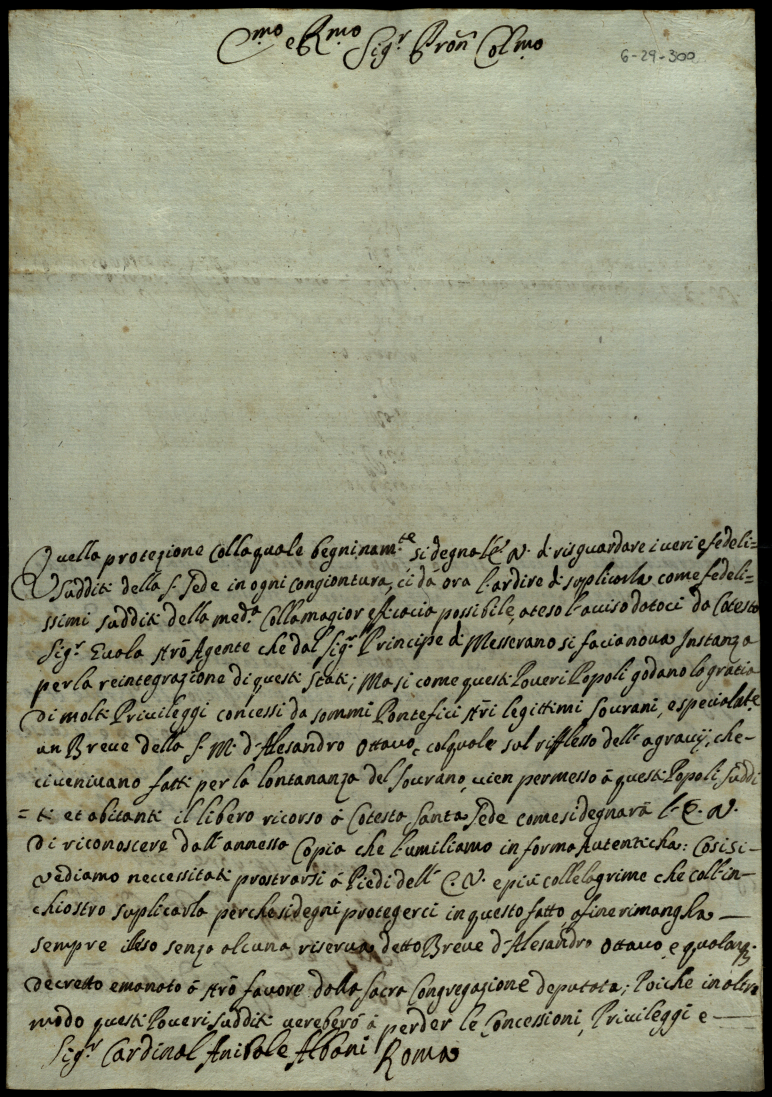 E.mo e R.mo Sig.r Pron Col.mo
6-29-300
Quella protezione collaquale begninam.te si degna l'E. V. di risguardare i veri e fedeli=
Sudditi della S. Sede in ogni congiontura, ci dà ora l'ardire di suplicarla come fedeli=
ssimi sudditi della med.a colla magior eficacia possibile, ateso l'aviso datoci da Cotesto
Sig.r Evola nrõ Agente che dal Sig.r Principe di Messerano si facia nova Instanza
per la reintegrazione di questi Stati; Ma si come questi Poveri Popoli godano la gratia
di molti Privileggi concessi da sommi Pontefici nri legittimi Sovrani, e specialm.te
un Breve della S. M. d'Alesandro Ottavo, colquale sul riflesso dell' agravij, che
ci venivano fatti per la lontananza del Sovrano, vien permesso à questi Popoli, suddi
=ti et abitanti il libero ricorso à Cotesta Santa Sede come si degnarà l'E. V.
di riconoscere dall' annessa Copia che l'umiliamo in forma Autenticha: Cosi si
vediamo neccessitati prostrarsi à Piedi dell' E. V. e più colle lagrime che coll' in=
chiostro suplicarla perche si degni protegerci in questo fatto, afine rimangha
sempre illiso senza alcuna riserva detto Breve d'Alesandro Ottavo, e qualunq.
decretto emanato à nrõ favore dalla Sacra Congregazione deputata; Poiche in altro
modo questi Poveri sudditi verebero à perder le Concessioni, Privileggi e
Sig.r Cardinal Anibale Albani Roma